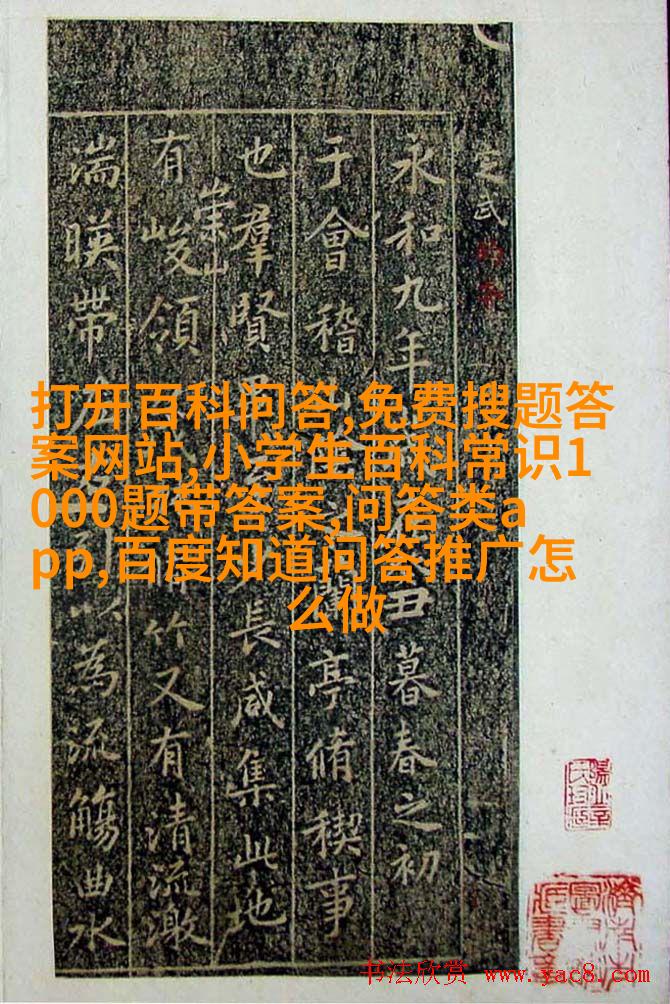 定武
永和九年丑暮春之初
于會稽亭脩稧事
也羣賢長咸集此地
有崇山峻領竹又有清流激
湍暎帶左以為流觴曲水
打开百科问答,免费搜题答
案网站,小学生百科常识1
000题带答案,问答类a
pp,百度知道问答推广怎
么做
书法欣赏 www.yac8.com